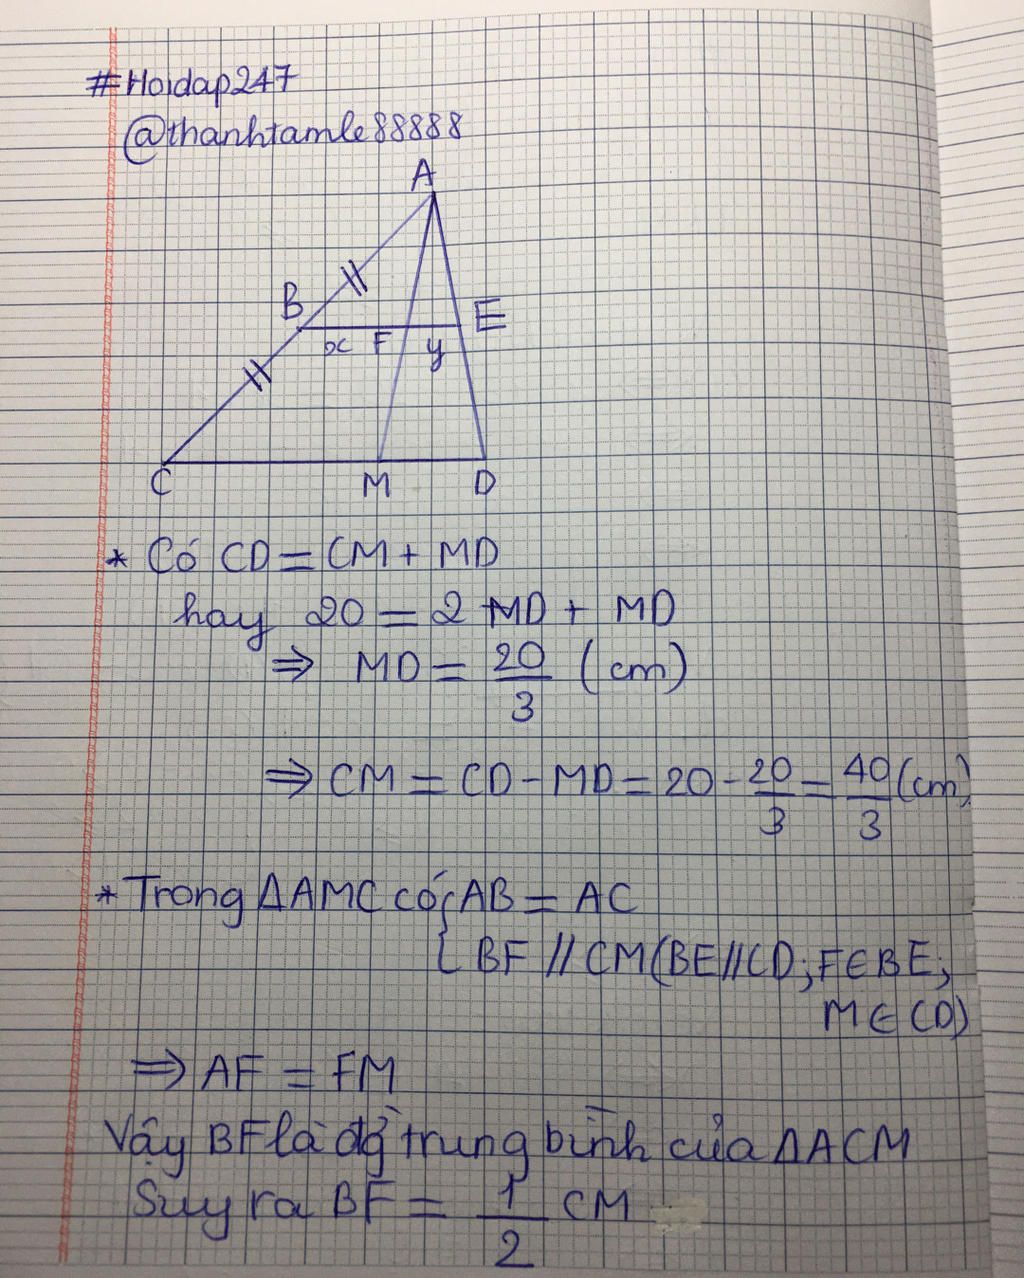 #Hoidap247
@thanhtamle88888
A
B
E
x F y
C M D
* Có CD = CM + MD
hay 20 = 2 MD + MD
⇒ MD = 20/3 (cm)
⇒ CM = CD - MD = 20 - 20/3 = 40/3 (cm)
* Trong ΔAMC có { AB = AC
BF // CM (BE // CD; F ∈ BE;
M ∈ CD)
⇒ AF = FM
Vậy BF là đg̀ trung bình của ΔACM
Suy ra BF = 1/2 CM